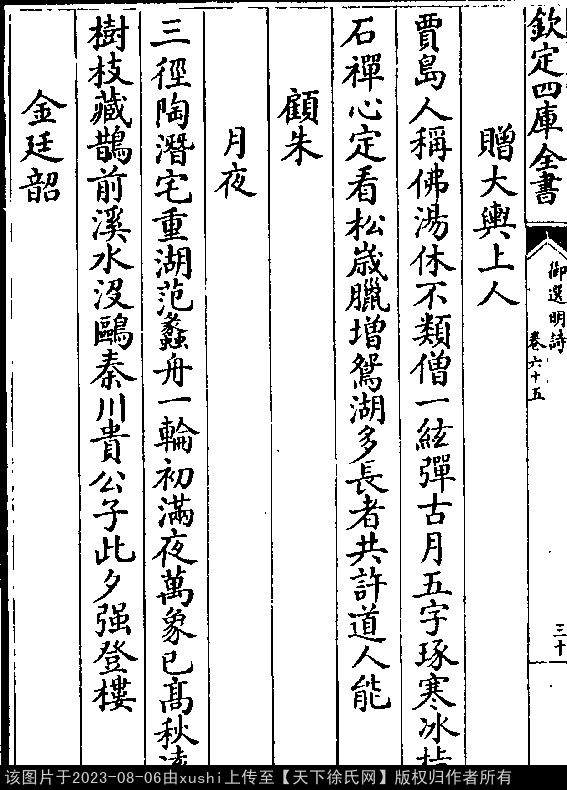 欽定四庫全書
御選明詩
卷六十五
三十
贈大輿上人
賈島人稱佛湯休不類僧一絃彈古月五字琢寒冰
石禪心定看松嵗臘增鴛湖多長者共許道人能
顧朱
月夜
三徑陶潛宅重湖范蠡舟一輪初滿夜萬象已髙秋
樹枝藏鵲前溪水沒鷗秦川貴公子此夕强登樓
金廷韶
该图片于2023-08-06由xushi上传至【天下徐氏网】版权归作者所有